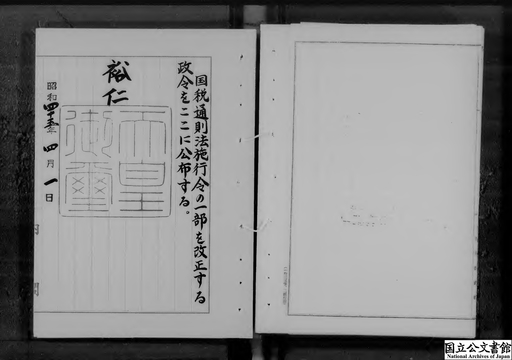 国税通則法施行令の一部を改正する
政令をここに公布する。
裕仁
天皇
御璽
昭和四十五年四月一日
国立公文書館
National Archives of Japan